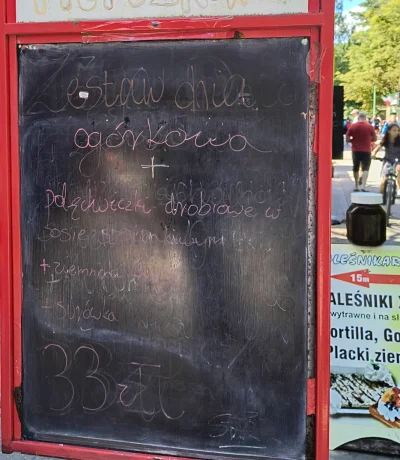 Zestaw dnia
ogórkowa
+
polędwiczki drobiowe w
sosie
+ ziemniaki
+
+ surówka
33 zł
LEŚNIKAR
15m
ALEŚNIKI
wytrawne i na sł
ortilla, Go
Placki zier